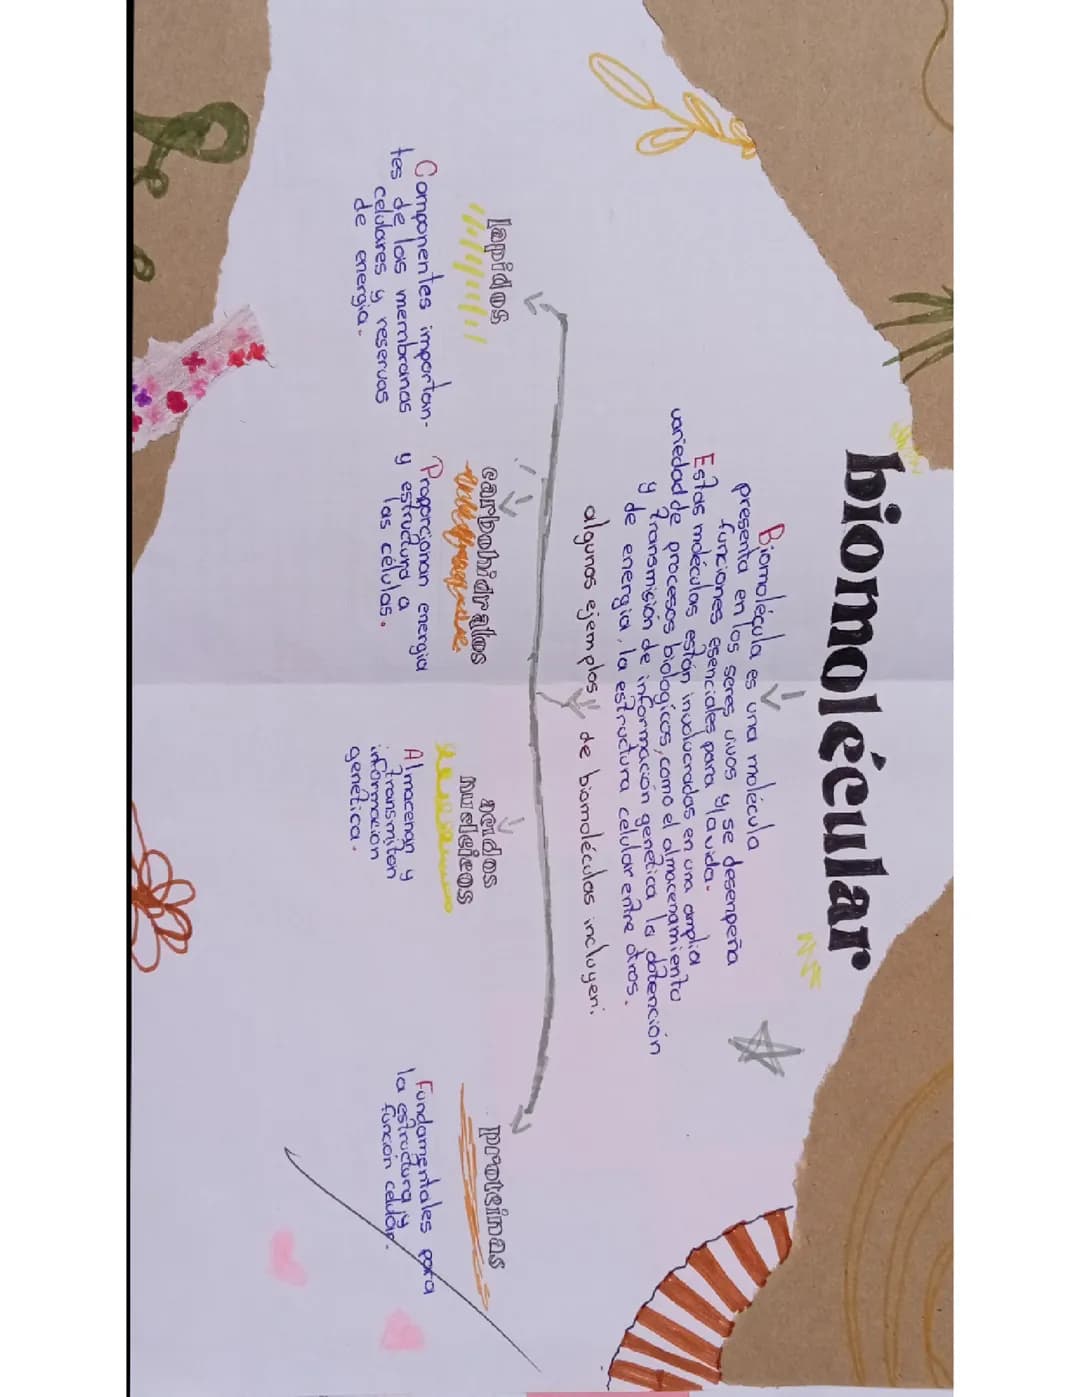 biomolécular
Biomolécula es una molécula
presenta en los seres vivos y se desenpeña
funciones esenciales para la vida.
Estas moléculas están involucradas en una amplia
variedad de procesos biologicos, como el almacenamiento
y transmisión de información genética la dotención
de energia, la estructura celular entre otros.
algunos ejemplos de biomoléculas incluyen:
lapidos
Componentes importan-
tes de las membranas
celulares y reservas
de energia.
carbohidratos
Proporcionan energia
y estructura a
las células.
acidos
nucleicos
Almacenan y
transmiten
información
genética.
proteinas
Fundamentales para
la estructura y
función celular.